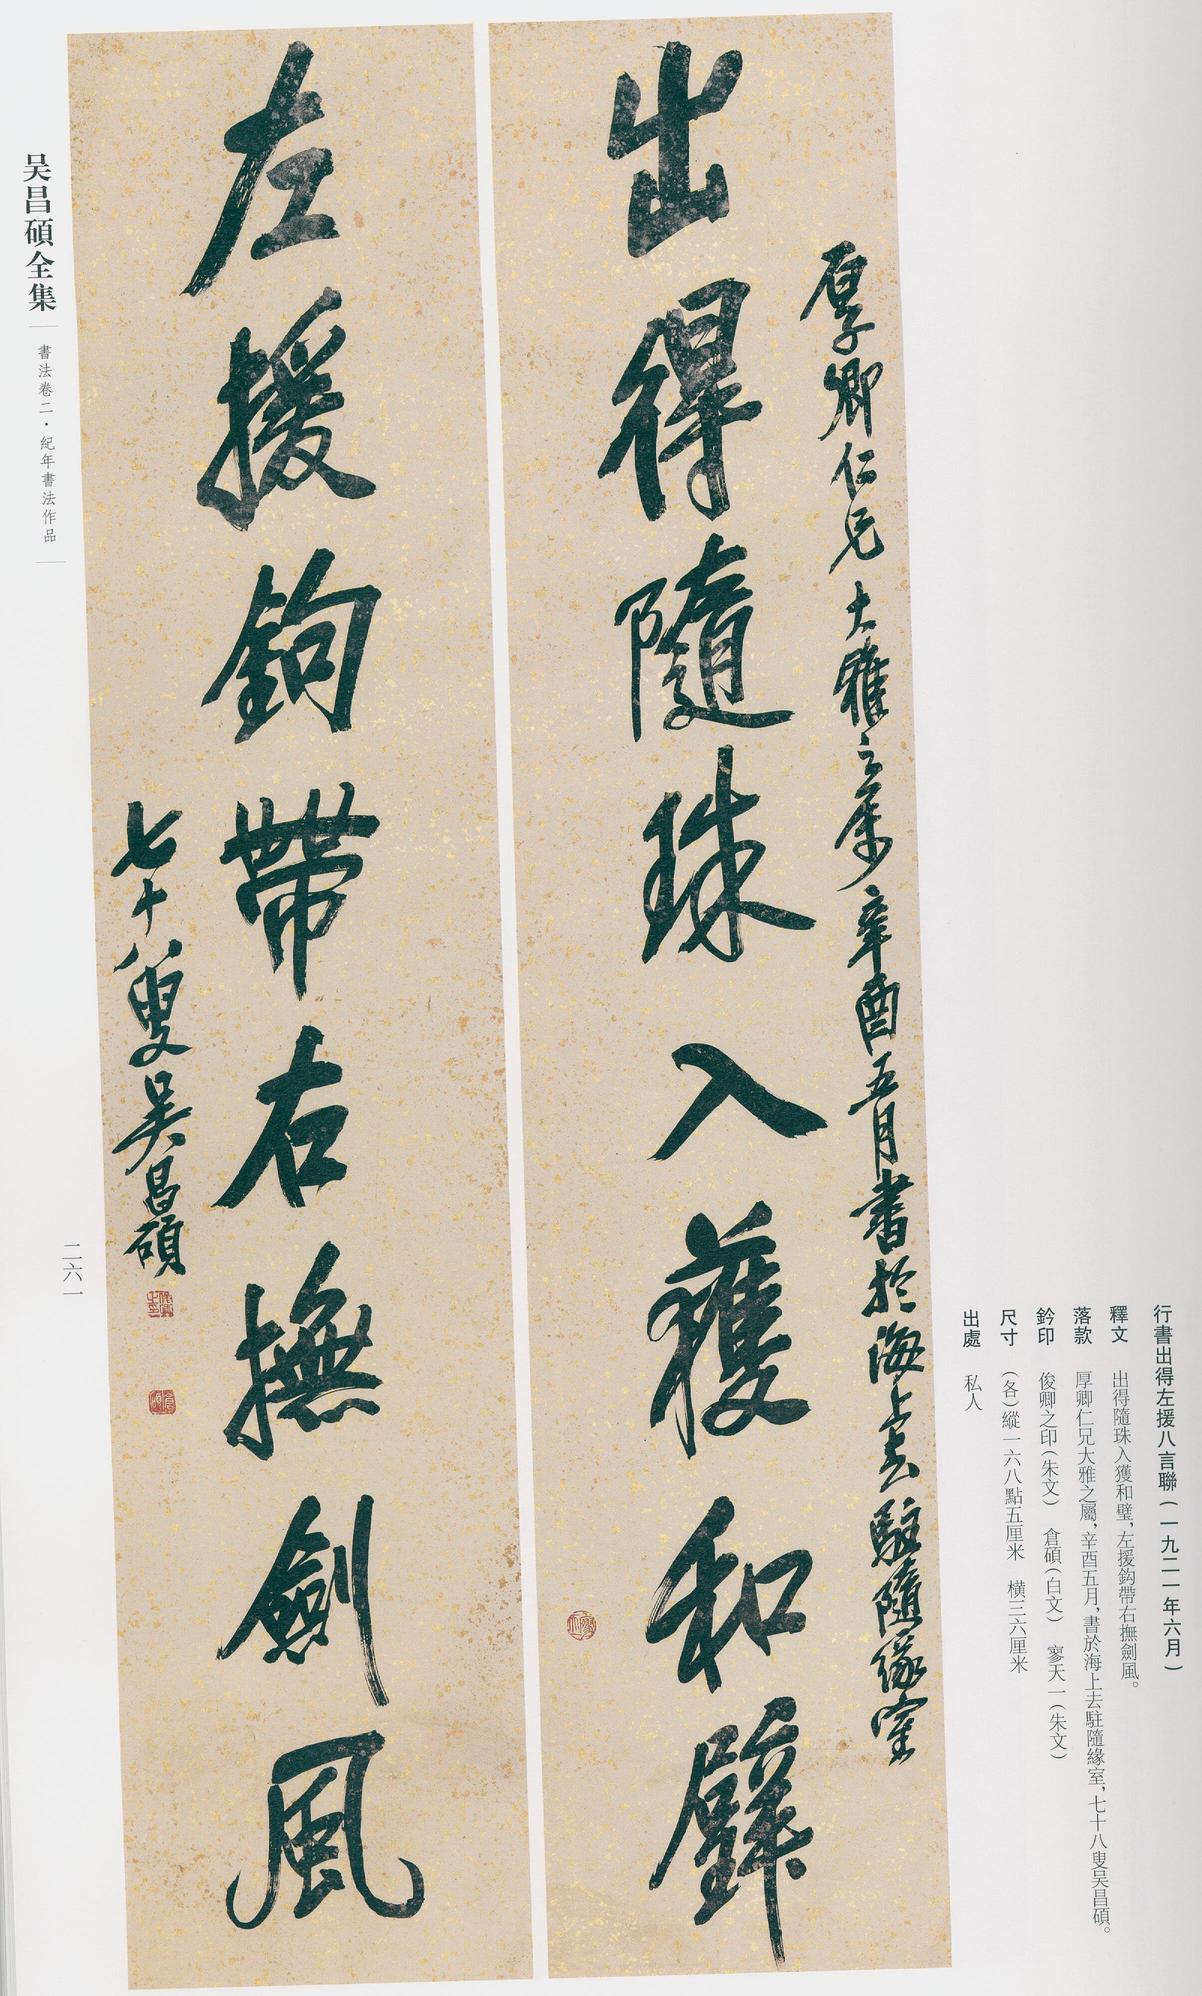 行書出得左援八言聯（一九二一年六月）
釋文 出得隨珠入獲和璧，左援鈎帶右撫劍風。
落款 厚卿仁兄大雅之屬，辛酉五月，書於海上去駐隨緣室，七十八叟吴昌碩。
鈐印 俊卿之印（朱文） 倉碩（白文） 寥天一（朱文）
尺寸 （各）縱一六八點五厘米 横三六厘米
出處 私人
厚卿仁兄大雅之屬辛酉五月書於海上去駐隨緣室
出得隨珠入獲和璧
左援鉤帶右撫劍風
七十八叟吳昌碩
吴昌碩全集
書法卷二·紀年書法作品
二六一